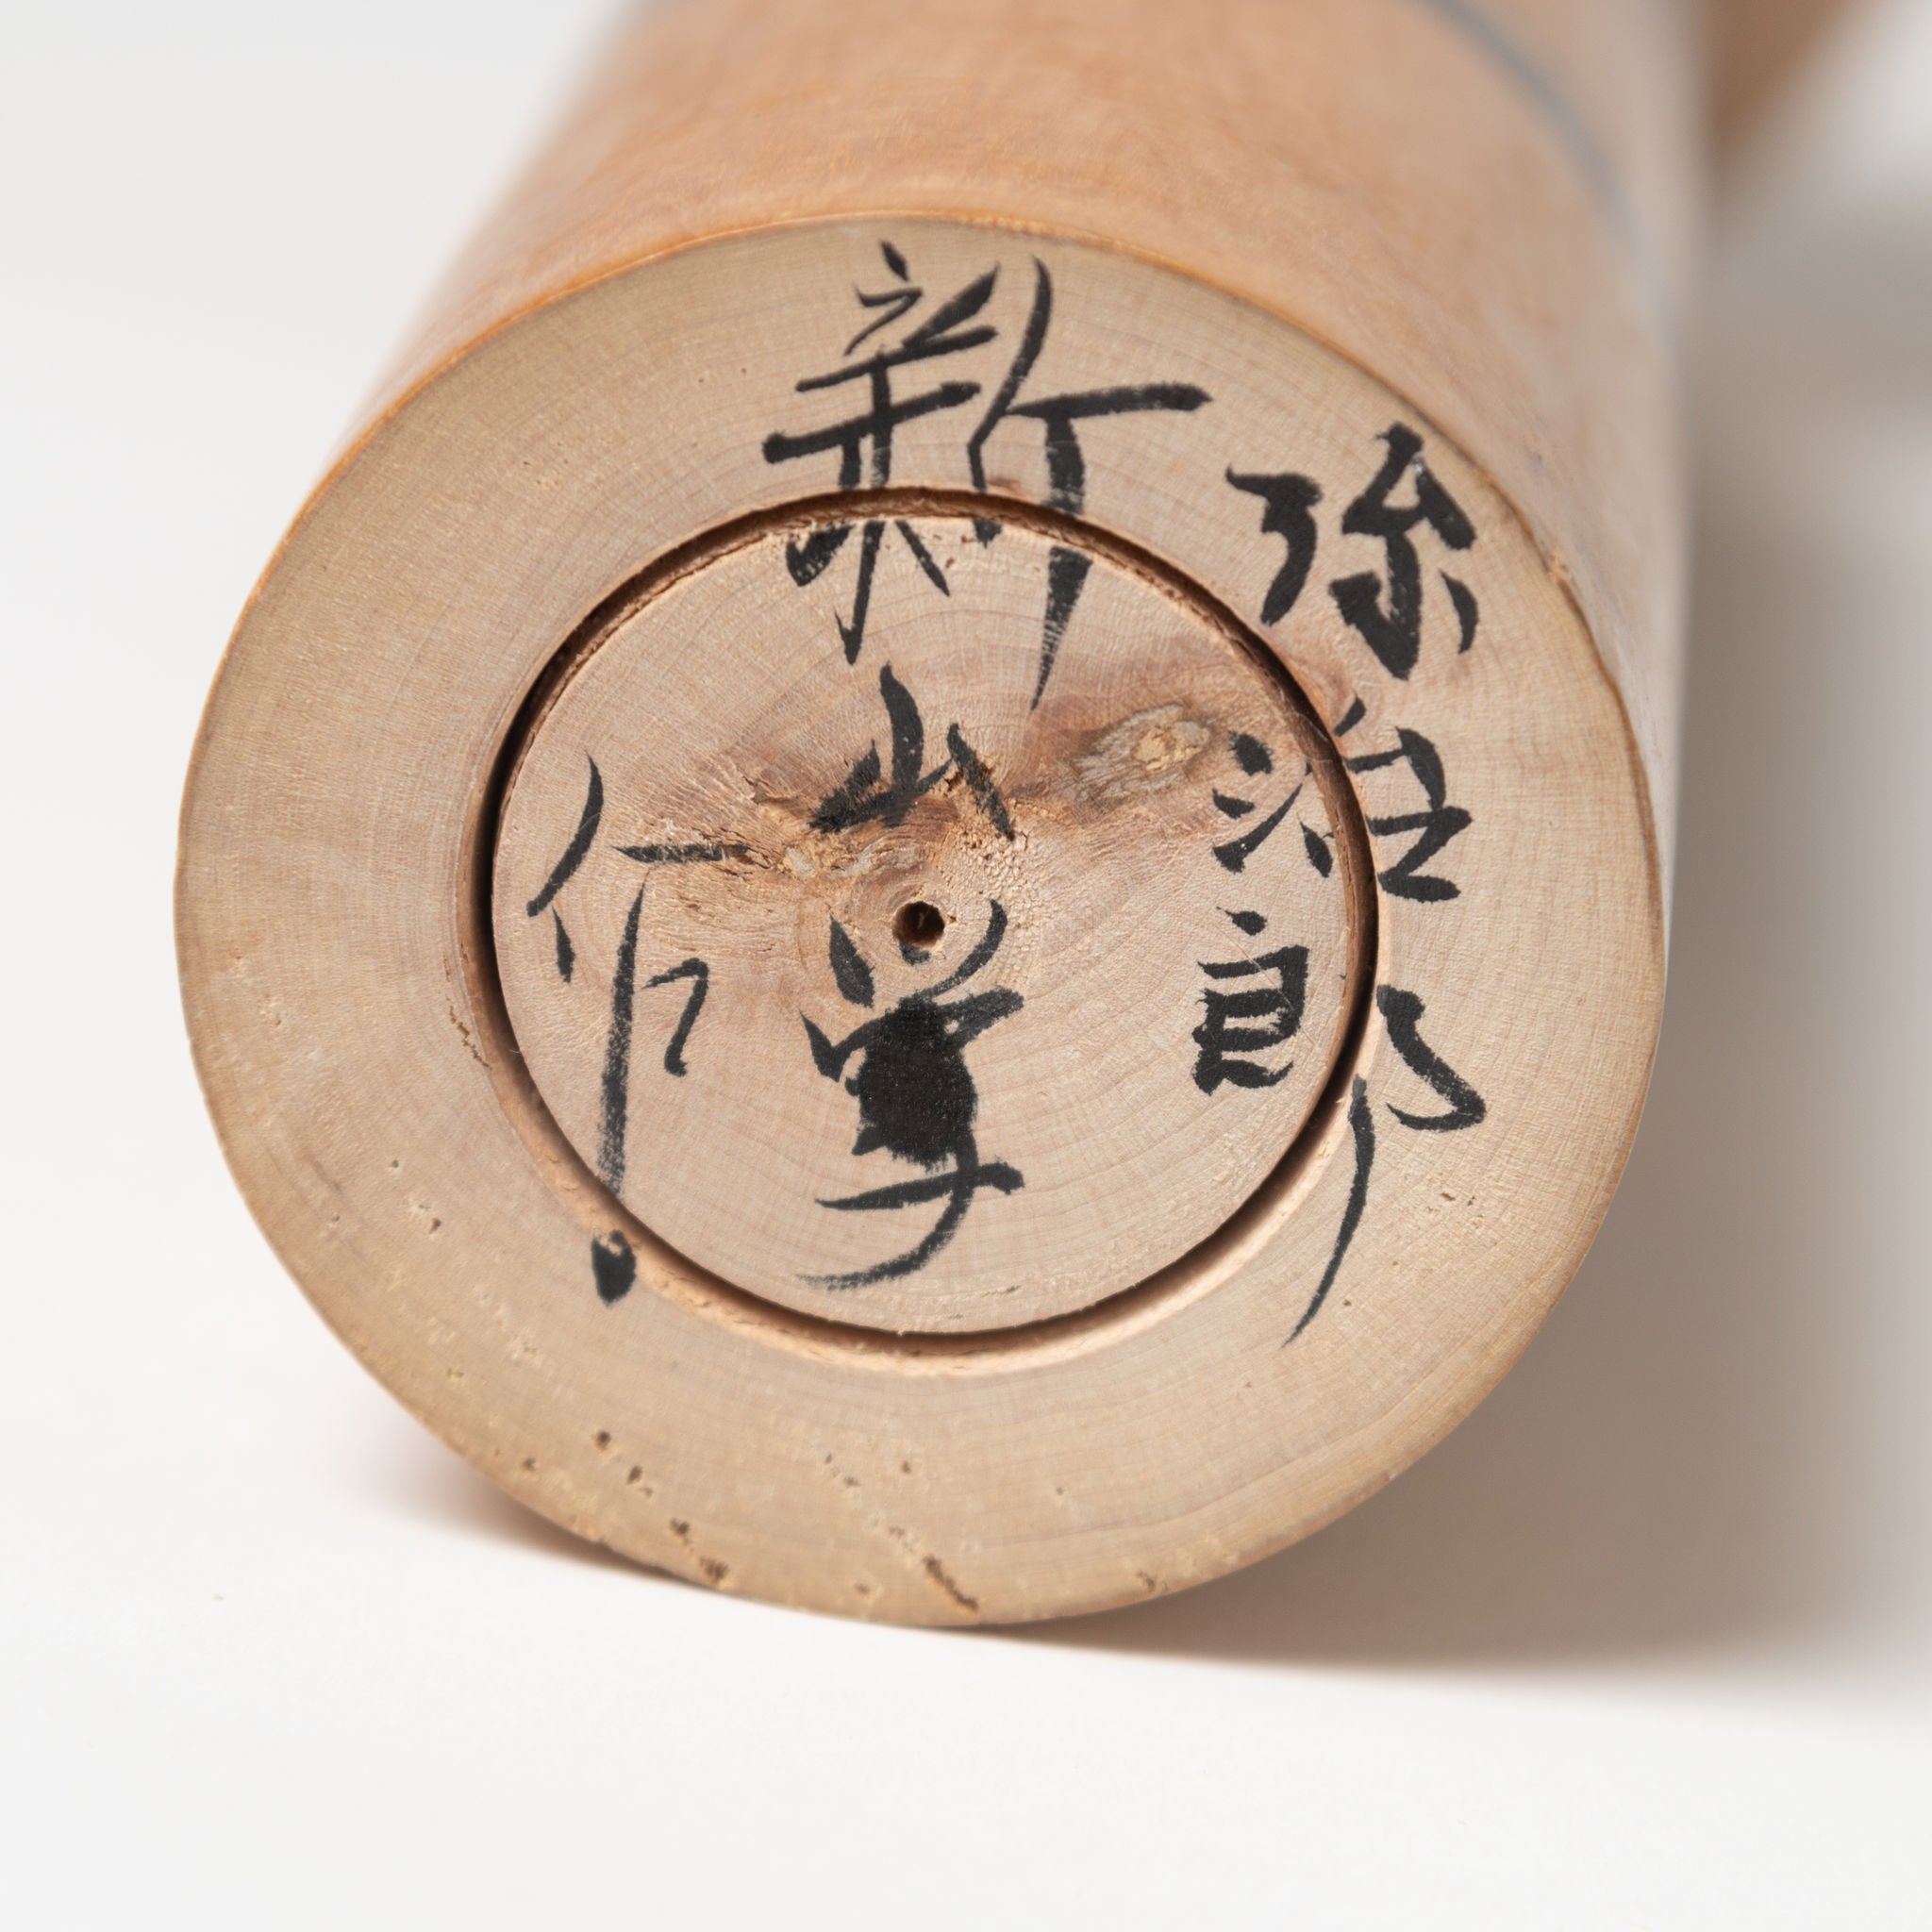 弥治郎
新山学
作